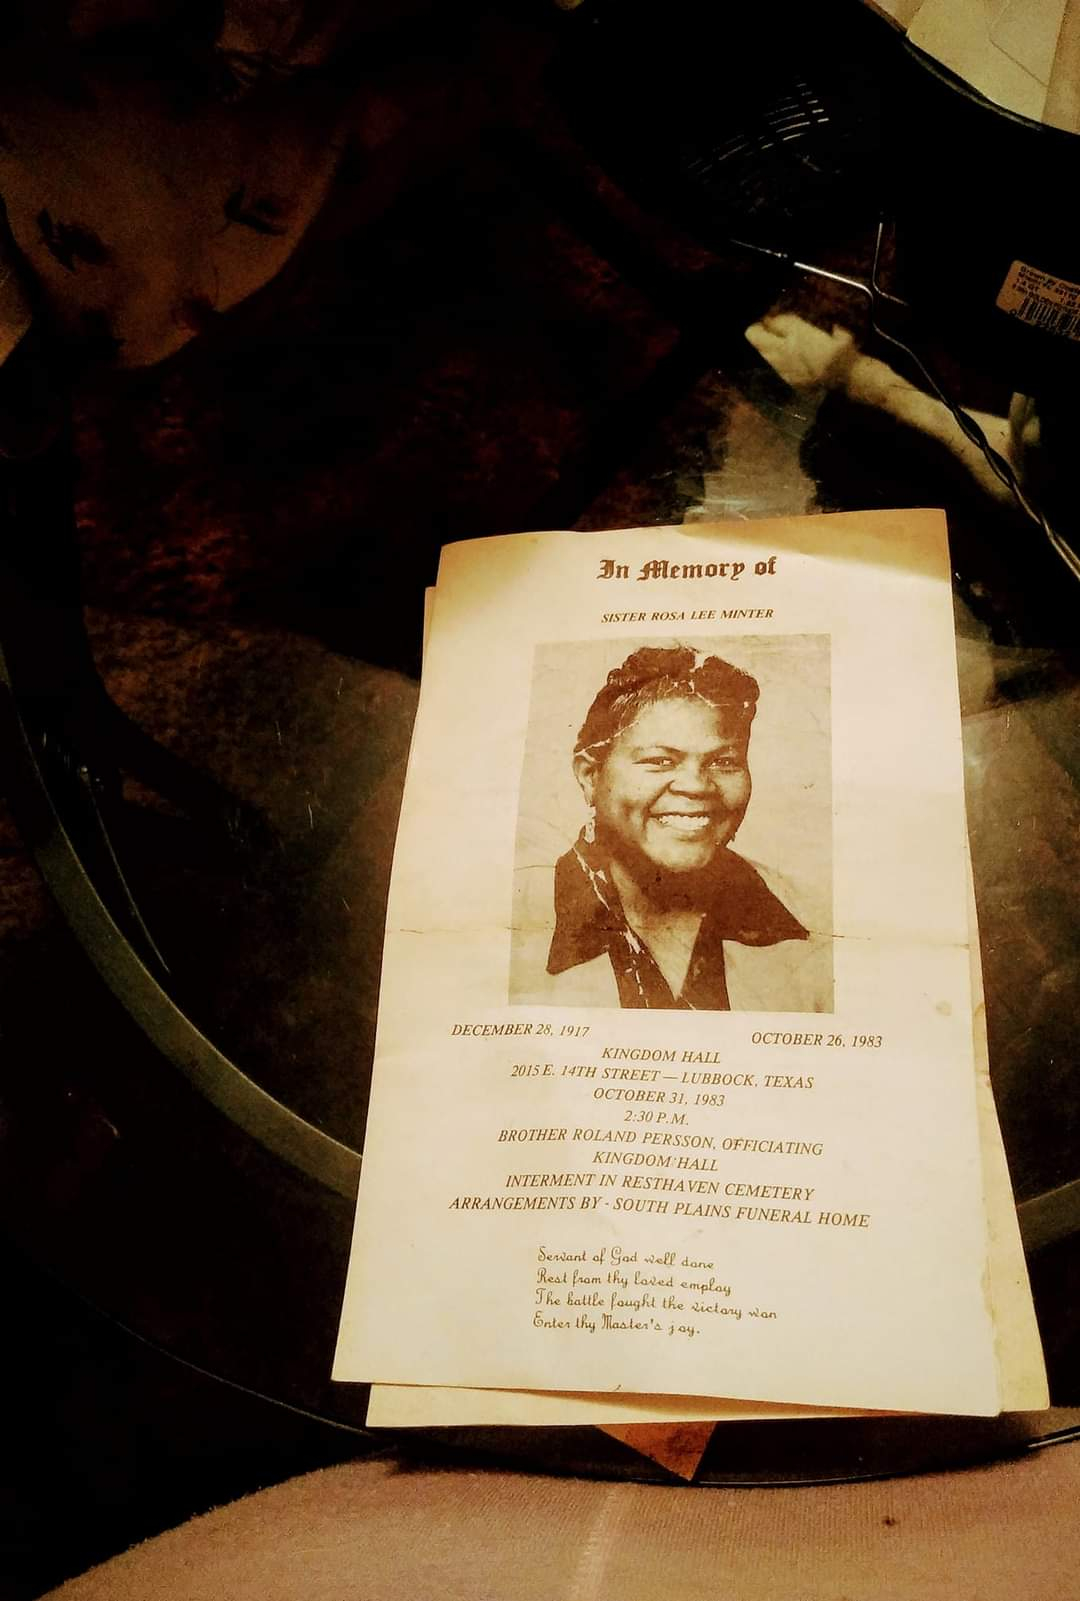 In Memory of
SISTER ROSA LEE MINTER
DECEMBER 28, 1917 OCTOBER 26, 1983
KINGDOM HALL
2015 E. 14TH STREET — LUBBOCK, TEXAS
OCTOBER 31, 1983
2:30 P.M.
BROTHER ROLAND PERSSON, OFFICIATING
KINGDOM HALL
INTERMENT IN RESTHAVEN CEMETERY
ARRANGEMENTS BY - SOUTH PLAINS FUNERAL HOME
Servant of God well done
Rest from thy loved employ
The battle fought the victory won
Enter thy Master's joy.